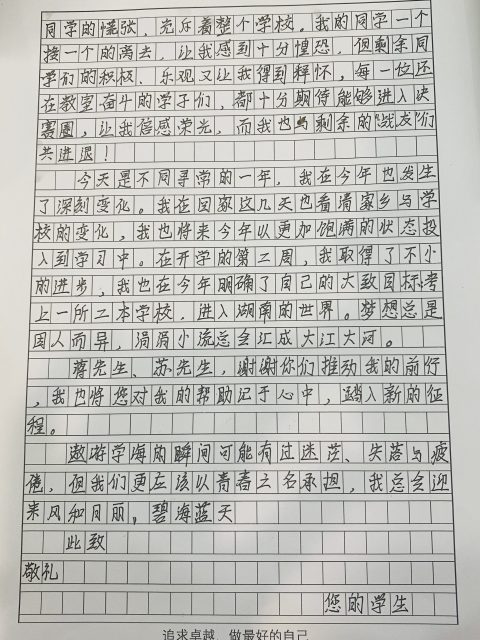 同学的慌张，充斥着整个学校。我的同学一个
接一个的离去，让我感到十分惶恐，但剩余同
学们的积极、乐观又让我得到释怀，每一位还
在教室奋斗的学子们，都十分期待能够进入决
赛圈，让我倍感荣光，而我也与剩余的"战友"们
共进退！
今天是不同寻常的一年，我在今年也发生
了深刻变化。我在回家这几天也看清家乡与学
校的变化，我也将来今年以更加饱满的状态投
入到学习中。在开学的第二周，我取得了不小
的进步，我也在今年明确了自己的大致目标考
上一所二本学校，进入湖南的世界。梦想总是
因人而异，涓涓小流总会汇成大江大河。
蒋先生、苏先生，谢谢你们推动我的前行
，我也将您对我的帮助记于心中，踏入新的征
程。
遨游学海的瞬间可能有过迷茫、失落与疲
倦，但我们更应该以青春之名承担，我总会迎
来风和日丽，碧海蓝天
此致
敬礼
您的学生
追求卓越，做最好的自己